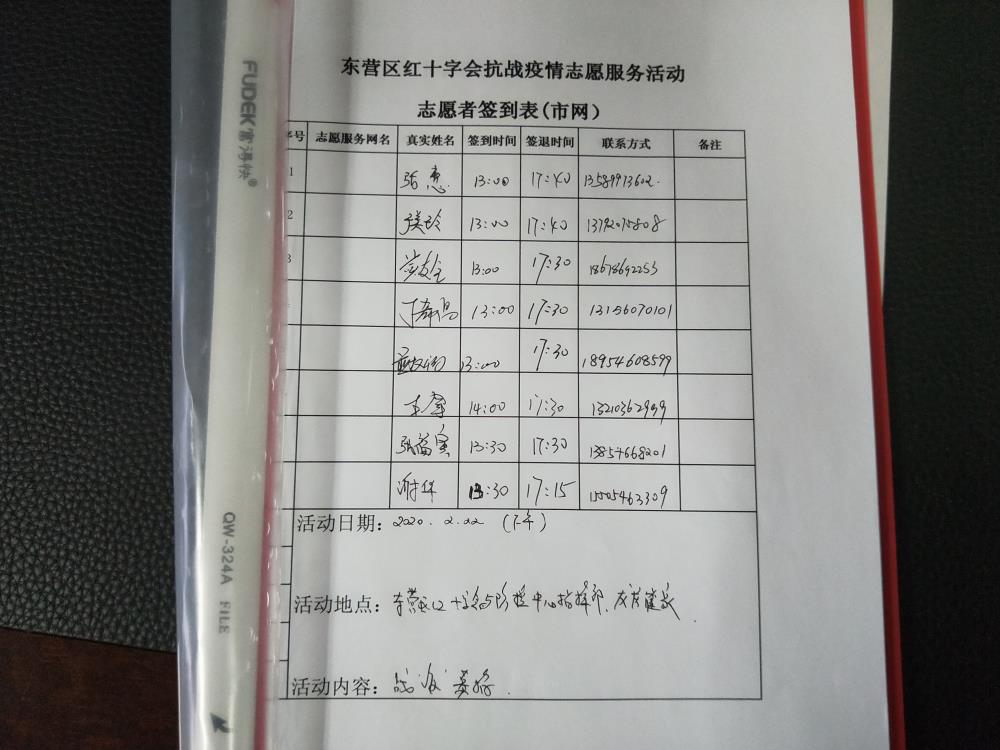 东营区红十字会抗战疫情志愿服务活动
志愿者签到表(市网)
序号 志愿服务网名 真实姓名 签到时间 签退时间 联系方式 备注
1 张惠 13:00 17:40 13589913602
2 13:00 17:40 13792075808
3 13:00 17:30 18678692253
13:00 17:30 13156070101
13:00 17:30 18954608599
王 14:00 17:30 13210362999
张富 13:30 17:30 13854668201
谢华 13:30 17:15 15505463309
活动日期: 2020.2.22 (下午)
活动地点: 东营区 中心指挥部
活动内容: 战疫
FUDEK 富得快®
QW-324A FILE